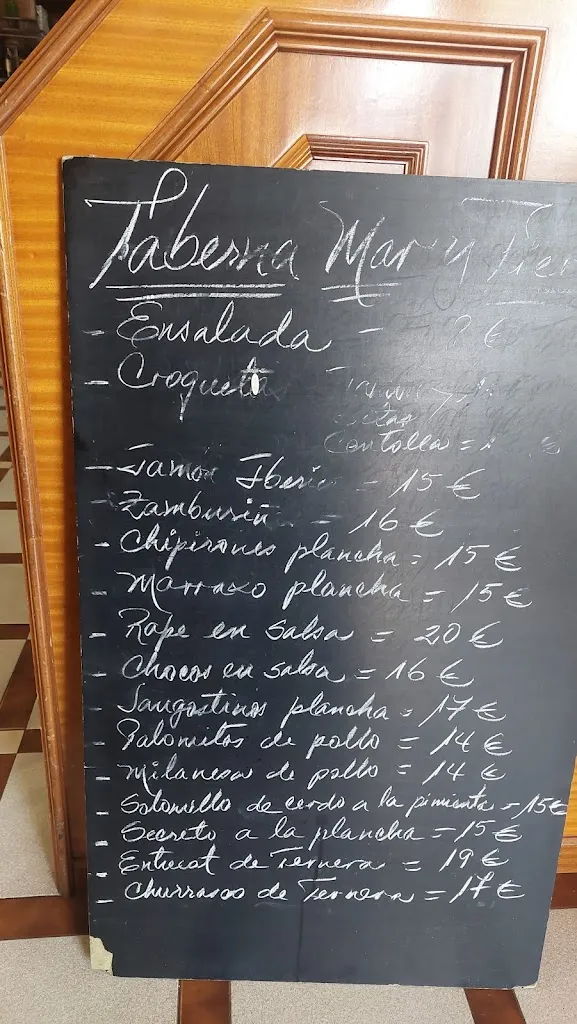 Taberna Mar y
- Ensalada - €
- Croquetas
Centolla =
- Jamon Iberic - 15 €
- Zamburiñ = 16 €
- Chipirones plancha = 15 €
- Marraxo plancha = 15 €
- Rape en salsa = 20 €
- Chocos en salsa = 16 €
- Langostinos plancha = 17 €
- Palomitas de pollo = 14 €
- Milanesa de pollo = 14 €
- Solomillo de cerdo a la pimienta = 15 €
- Secreto a la plancha - 15 €
- Entrecot de Ternera = 19 €
- Churrasco de Ternera = 17 €